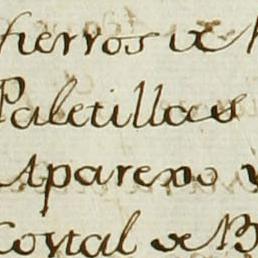 fierros de
Paletillas
Aparexo
Costal de B